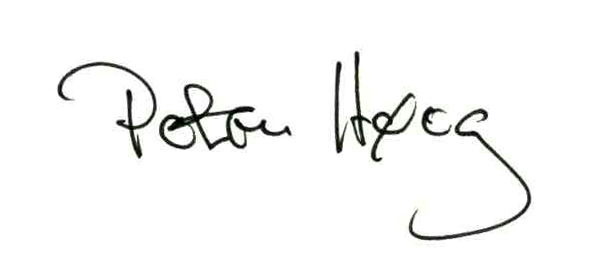 Peter Høeg